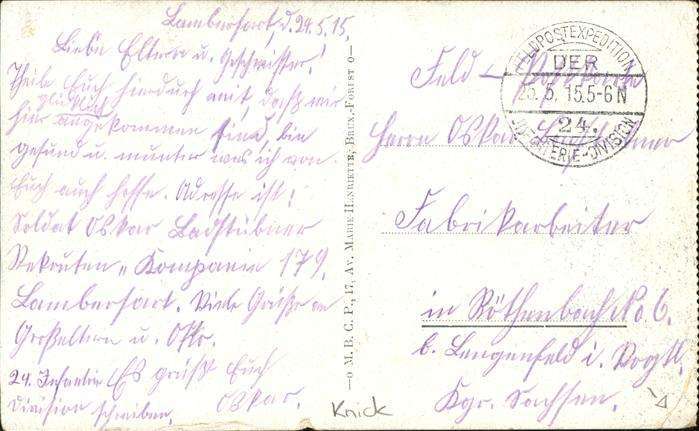 Lambersart, d. 24.5.15.
Liebe Eltern u. Geschwister!
Theile Euch hierdurch mit, daß wir
glücklich
hier angekommen sind, bin
gesund u. munter was ich von
Euch auch hoffe. Adresse ist:
Soldat Oskar Ladstübner
Rekruten-Kompanie 179.
Lambersart. Viele Grüße an
Großeltern u.
Es grüßt Euch
Oskar.
24. Infantrie
Division schreiben.
—o M. B. C. P., 17, Av. Marie Henriette, Brux.-Forest o—
Feld-Postkarte
FELDPOSTEXPEDITION
DER
25.5.15.5-6N
24.
INFANTERIE-DIVISION
Herrn Oskar
Fabrikarbeiter
in Röthenbach No. 6.
b. Lengenfeld i. Vogtl.
Kgr. Sachsen.
Knick